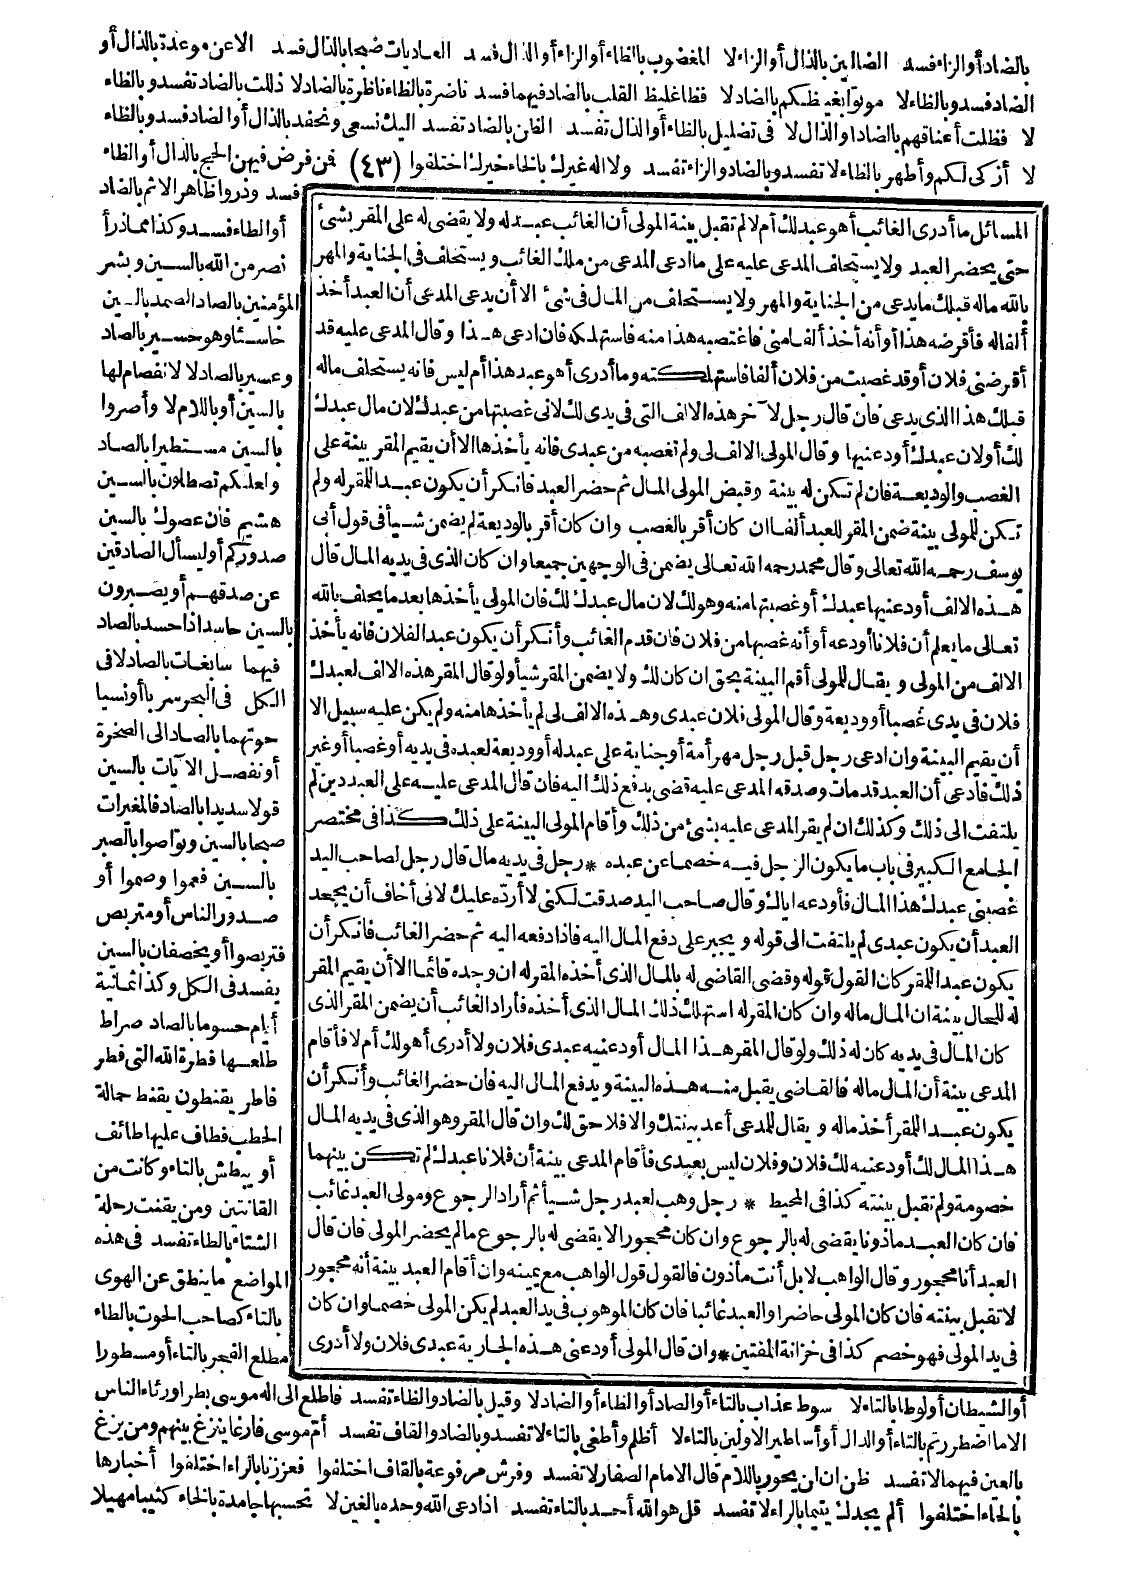 بالضاد أو الزاء فسد الضالين بالذال أو الزاء لا المغضوب بالظاء أو الزاء أو الذال فسد العاديات ضبحا بالذال فسد الا عن موعدة بالذال أو
الضاد فسد وبالظاء لا موتوا بغيظكم بالضاد لا فظا غليظ القلب بالضاد فيهما فسد ناضرة بالظاء ناظرة بالضاد لا ذللت بالضاد تفسد وبالظاء
لا فظلت أعناقهم بالضاد أو الذال لا في تضليل بالظاء أو الذال تفسد الظن بالضاد تفسد اليك نسعى ونحفد بالذال أو الضاد فسد وبالظاء
لا أزكى لكم وأطهر بالظاء لا تفسد وبالضاد والزاء تفسد ولا اله غيرك بالخاء خيرك اختلفوا (٤٣) فمن فرض فيهن الحج بالذال أو الظاء
فسد وذروا ظاهر الاثم بالضاد
أو الظاء فسد وكذا مما ذرأ
نصر من الله بالسين وبشر
المؤمنين بالصاد الصمد بالسين
خاسئا وهو حسير بالصاد
وعسير بالصاد لا لا انفصام لها
بالسين أو باللام لا وأصروا
بالسين مستطيرا بالصاد
ولعلكم تصطلون بالسين
هشيم فان عصوك بالسين
صدوركم أو ليسأل الصادقين
عن صدقهم أو يصبرون
بالسين حاسد اذا حسد بالصاد
فيهما سابغات بالصاد لا في
الكل في البحر سربا أو نسيا
حوتهما بالصاد الى الصخرة
أو نفصل الآيات بالسين
قولا سديدا بالصاد فالمغيرات
صبحا بالسين وتواصوا بالصبر
بالسين فعموا وصموا أو
صدور الناس أو متربص
فتربصوا أو يخصفان بالسين
يفسد في الكل وكذا ثمانية
أيام حسوما بالصاد صراط
طلعها فطرة الله التى فطر
فاطر يقنطون يقنط حمالة
الحطب فطاف عليها طائف
أو يبطش بالتاء وكانت من
القانتين ومن يقنت رحلة
الشتاء بالطاء تفسد في هذه
المواضع ما ينطق عن الهوى
بالتاء كصاحب الحوت بالطاء
مطلع الفجر بالتاء أو مسطورا
المسائل ما أدرى الغائب أهو عبدك أم لا لم تقبل بينة المولى أن الغائب عبد له ولا يقضى له على المقر بشئ
حتى يحضر العبد ولا يستحلف المدعى عليه على ما ادعى المدعى من ملك الغائب ويستحلف في الجناية والمهر
بالله ماله قبلك ما يدعى من الجناية والمهر ولا يستحلف من المال في شئ الا أن يدعى المدعى أن العبد أخذ
ألفا له فأقرضه هذا أو أنه أخذ ألفا منى فاغتصبه هذا منه فاستهلكه فان ادعى هذا وقال المدعى عليه قد
أقرضنى فلان أو قد غصبت من فلان ألفا فاستهلكته وما أدرى أهو عبد هذا أم ليس فانه يستحلف ماله
قبلك هذا الذى يدعى فان قال رجل لآخر هذه الالف التى في يدى لك لانى غصبتها من عبدك لان مال عبدك
لك أو لان عبدك أودعنيها وقال المولى الالف لى ولم تغصبه من عبدى فانه يأخذها الا أن يقيم المقر بينة على
الغصب والوديعة فان لم تكن له بينة وقبض المولى المال ثم حضر العبد فانكر أن يكون عبدا للمقر له ولم
تكن للمولى بينة ضمن المقر للعبد ألفا ان كان أقر بالغصب وان كان أقر بالوديعة لم يضمن شيأ في قول أبى
يوسف رحمه الله تعالى وقال محمد رحمه الله تعالى يضمن في الوجهين جميعا وان كان الذى في يديه المال قال
هذه الالف أودعنيها عبدك أو غصبتها منه وهو لك لان مال عبدك لك فان المولى يأخذها بعد ما يحلف بالله
تعالى ما يعلم أن فلانا أودعه أو أنه غصبها من فلان فان قدم الغائب وأنكر أن يكون عبدا لفلان فانه يأخذ
الالف من المولى ويقال للمولى أقم البينة بحق ان كان لك ولا يضمن المقر شيأ ولو قال المقر هذه الالف لعبدك
فلان في يدى غصبا أو وديعة وقال المولى فلان عبدى وهذه الالف لى لم يأخذها منه ولم يكن عليه سبيل الا
أن يقيم البينة وان ادعى رجل قبل رجل مهر أمة أو جناية على عبد له أو وديعة لعبده في يديه أو غصبا أو غير
ذلك فادعى أن العبد قد مات وصدقه المدعى عليه قضى بدفع ذلك اليه فان قال المدعى عليه على العبد دين لم
يلتفت الى ذلك وكذلك ان لم يقر المدعى عليه بشئ من ذلك وأقام المولى البينة على ذلك كذا في مختصر
الجامع الكبير في باب ما يكون الرجل فيه خصما عن عبده * رجل في يديه مال قال رجل لصاحب اليد
غصبنى عبدك هذا المال فأودعه اياك وقال صاحب اليد صدقت لكنى لا أرده عليك لانى أخاف أن يجحد
العبد أن يكون عبدى لم يلتفت الى قوله ويجبر على دفع المال اليه فاذا دفعه اليه ثم حضر الغائب فانكر أن
يكون عبدا للمقر كان القول قوله وقضى القاضى له بالمال الذى أخذه المقر له ان وجده قائما الا أن يقيم المقر
له للحال بينة ان المال ماله وان كان المقر له استهلك ذلك المال الذى أخذه فأراد الغائب أن يضمن المقر الذى
كان المال في يديه كان له ذلك ولو قال المقر هذا المال أودعنيه عبدى فلان ولا أدرى أهو لك أم لا فأقام
المدعى بينة أن المال ماله فالقاضى يقبل منه هذه البينة ويدفع المال اليه فان حضر الغائب وأنكر أن
يكون عبدا للمقر أخذ ماله ويقال للمدعى أعد بينتك والا فلا حق لك وان قال المقر وهو الذى في يديه المال
هذا المال لك أودعنيه لك فلان وفلان ليس بعبدى فأقام المدعى بينة أن فلانا عبدك لم تكن بينهما
خصومة ولم تقبل بينته كذا في المحيط * رجل وهب لعبد رجل شيأ ثم أراد الرجوع ومولى العبد غائب
فان كان العبد مأذونا يقضى له بالرجوع وان كان محجورا لا يقضى له بالرجوع ما لم يحضر المولى فان قال
العبد أنا محجور وقال الواهب لا بل أنت مأذون فالقول قول الواهب مع يمينه وان أقام العبد بينة أنه محجور
لا تقبل بينته فان كان المولى حاضرا والعبد غائبا فان كان الموهوب في يد العبد لم يكن المولى خصما وان كان
في يد المولى فهو خصم كذا في خزانة المفتين * وان قال المولى أودعنى هذه الجارية عبدى فلان ولا أدرى
أو الشيطان أو لوطا بالتاء لا سوط عذاب بالتاء أو الصاد أو الظاء أو الضاد لا وقيل بالضاد والظاء تفسد فاطلع الى اله موسى بطرا ورئاء الناس
الا ما اضطررتم بالتاء أو الدال أو أساطير الاولين بالتاء لا أظلم وأطغى بالتاء لا تفسد وبالضاد والقاف تفسد أم موسى فارغا ينزغ بينهم ومن يزغ
بالعين فيهما لا تفسد ظن ان لن يحور باللام قال الامام الصفار لا تفسد وفرش مرفوعة بالقاف اختلفوا فعززنا بالراء اختلفوا أخبارها
بالحاء اختلفوا ألم يجدك يتيما بالراء لا تفسد قل هو الله أحد بالتاء تفسد اذا دعى الله وحده بالغين لا تحسبها جامدة بالخاء كثيبا مهيلا